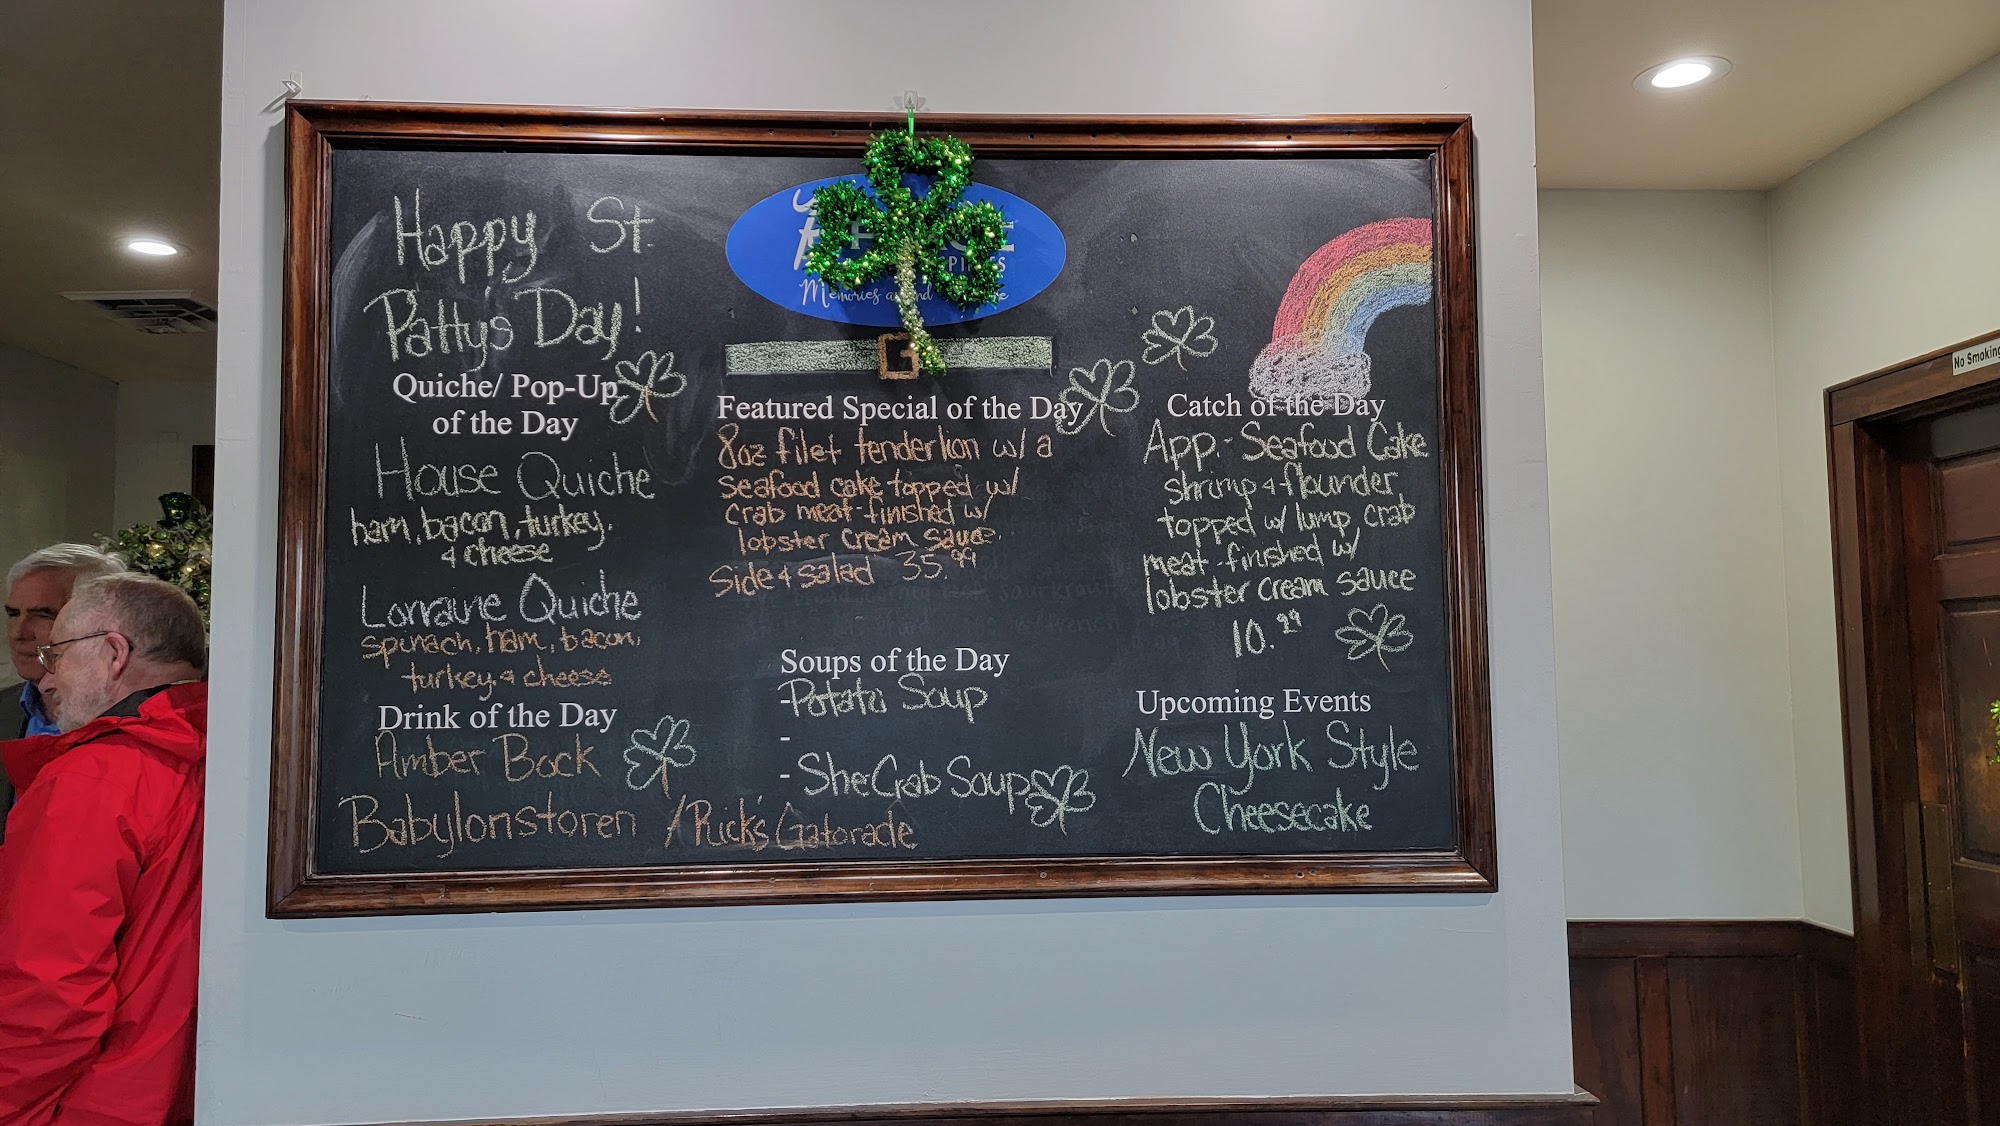 Happy St.
Patty's Day!
Quiche/ Pop-Up
of the Day
House Quiche
ham, bacon, turkey,
& cheese
Lorraine Quiche
spinach, ham, bacon,
turkey, & cheese
Drink of the Day
Amber Bock
Babylonstoren / Rick's Gatorade
Memories
Featured Special of the Day
8oz filet tenderlion w/ a
seafood cake topped w/
crab meat-finished w/
lobster cream sauce.
Side & salad 35.99
Soups of the Day
-Potato Soup
-
- She Crab Soup
Catch of the Day
App:- Seafood Cake
shrimp & flounder
topped w/ lump crab
meat-finished w/
lobster cream sauce
10.99
Upcoming Events
New York Style
Cheesecake
No Smoking